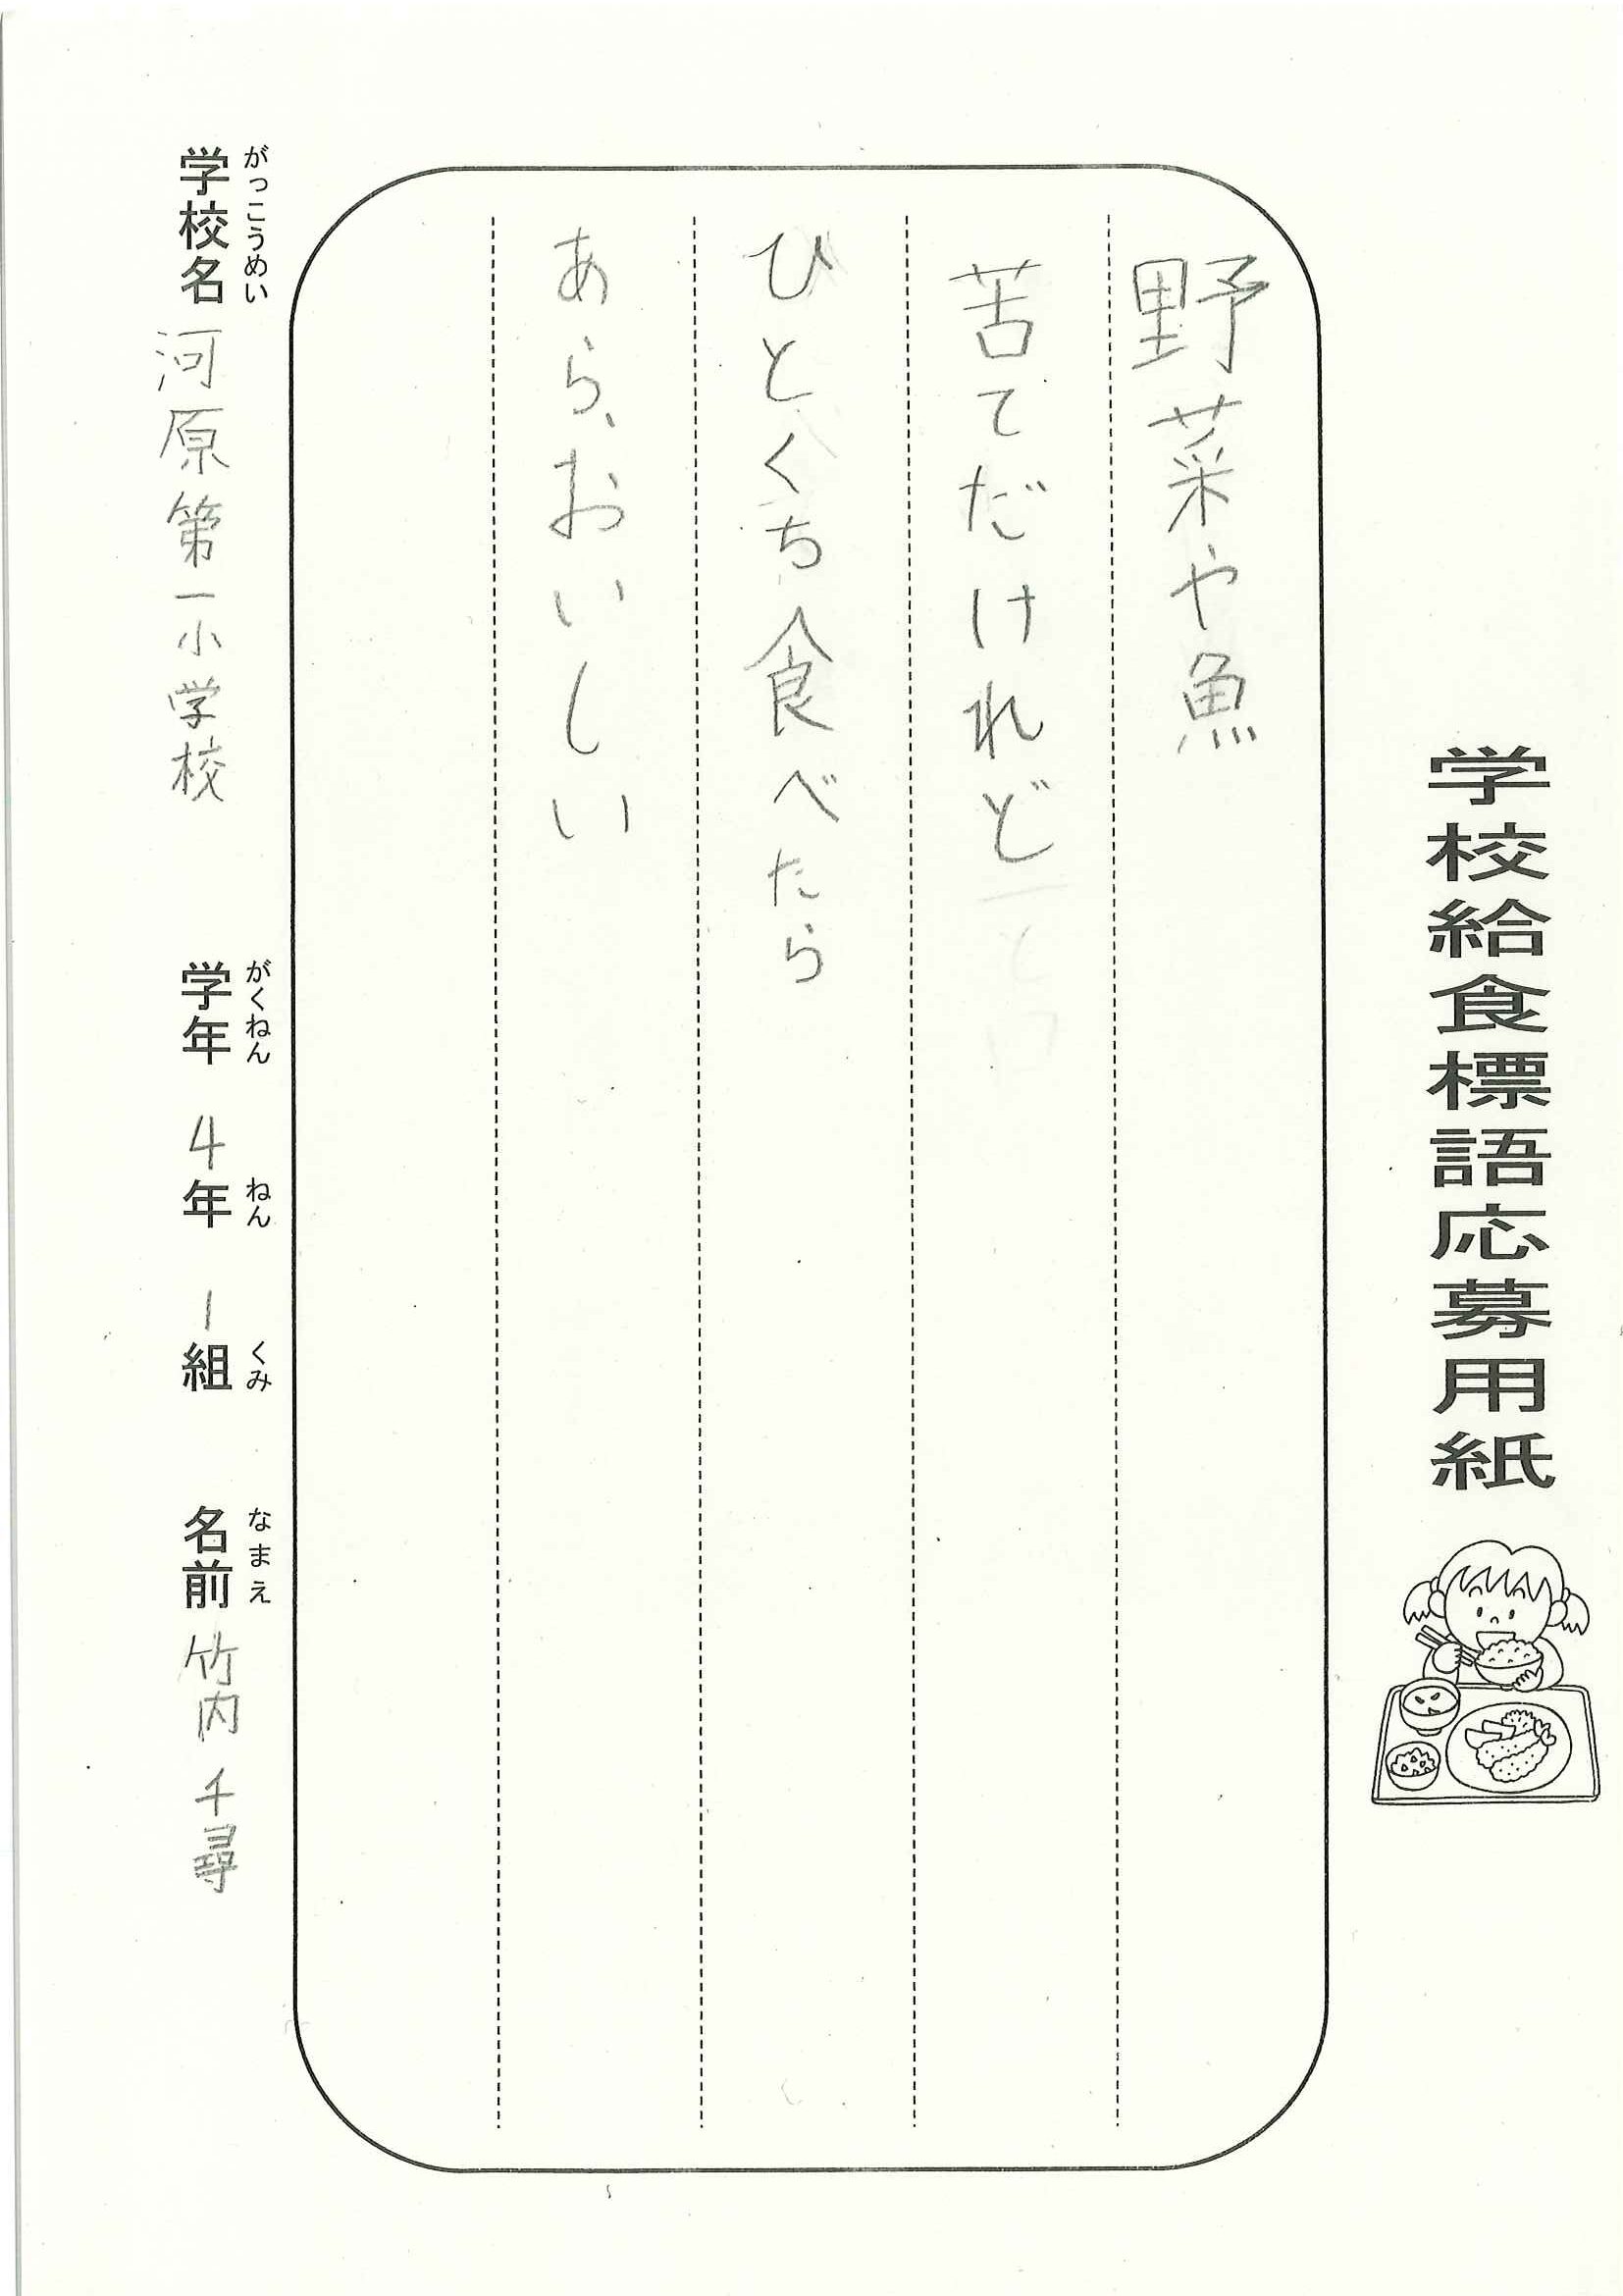 学校給食標語応募用紙
野菜や魚
苦てだけれど
ひとくち食べたら
あら、おいしい
がっこうめい
学校名 河原第一小学校
がくねん
学年 4年 1組
ねん
くみ
なまえ
名前 竹内 千尋